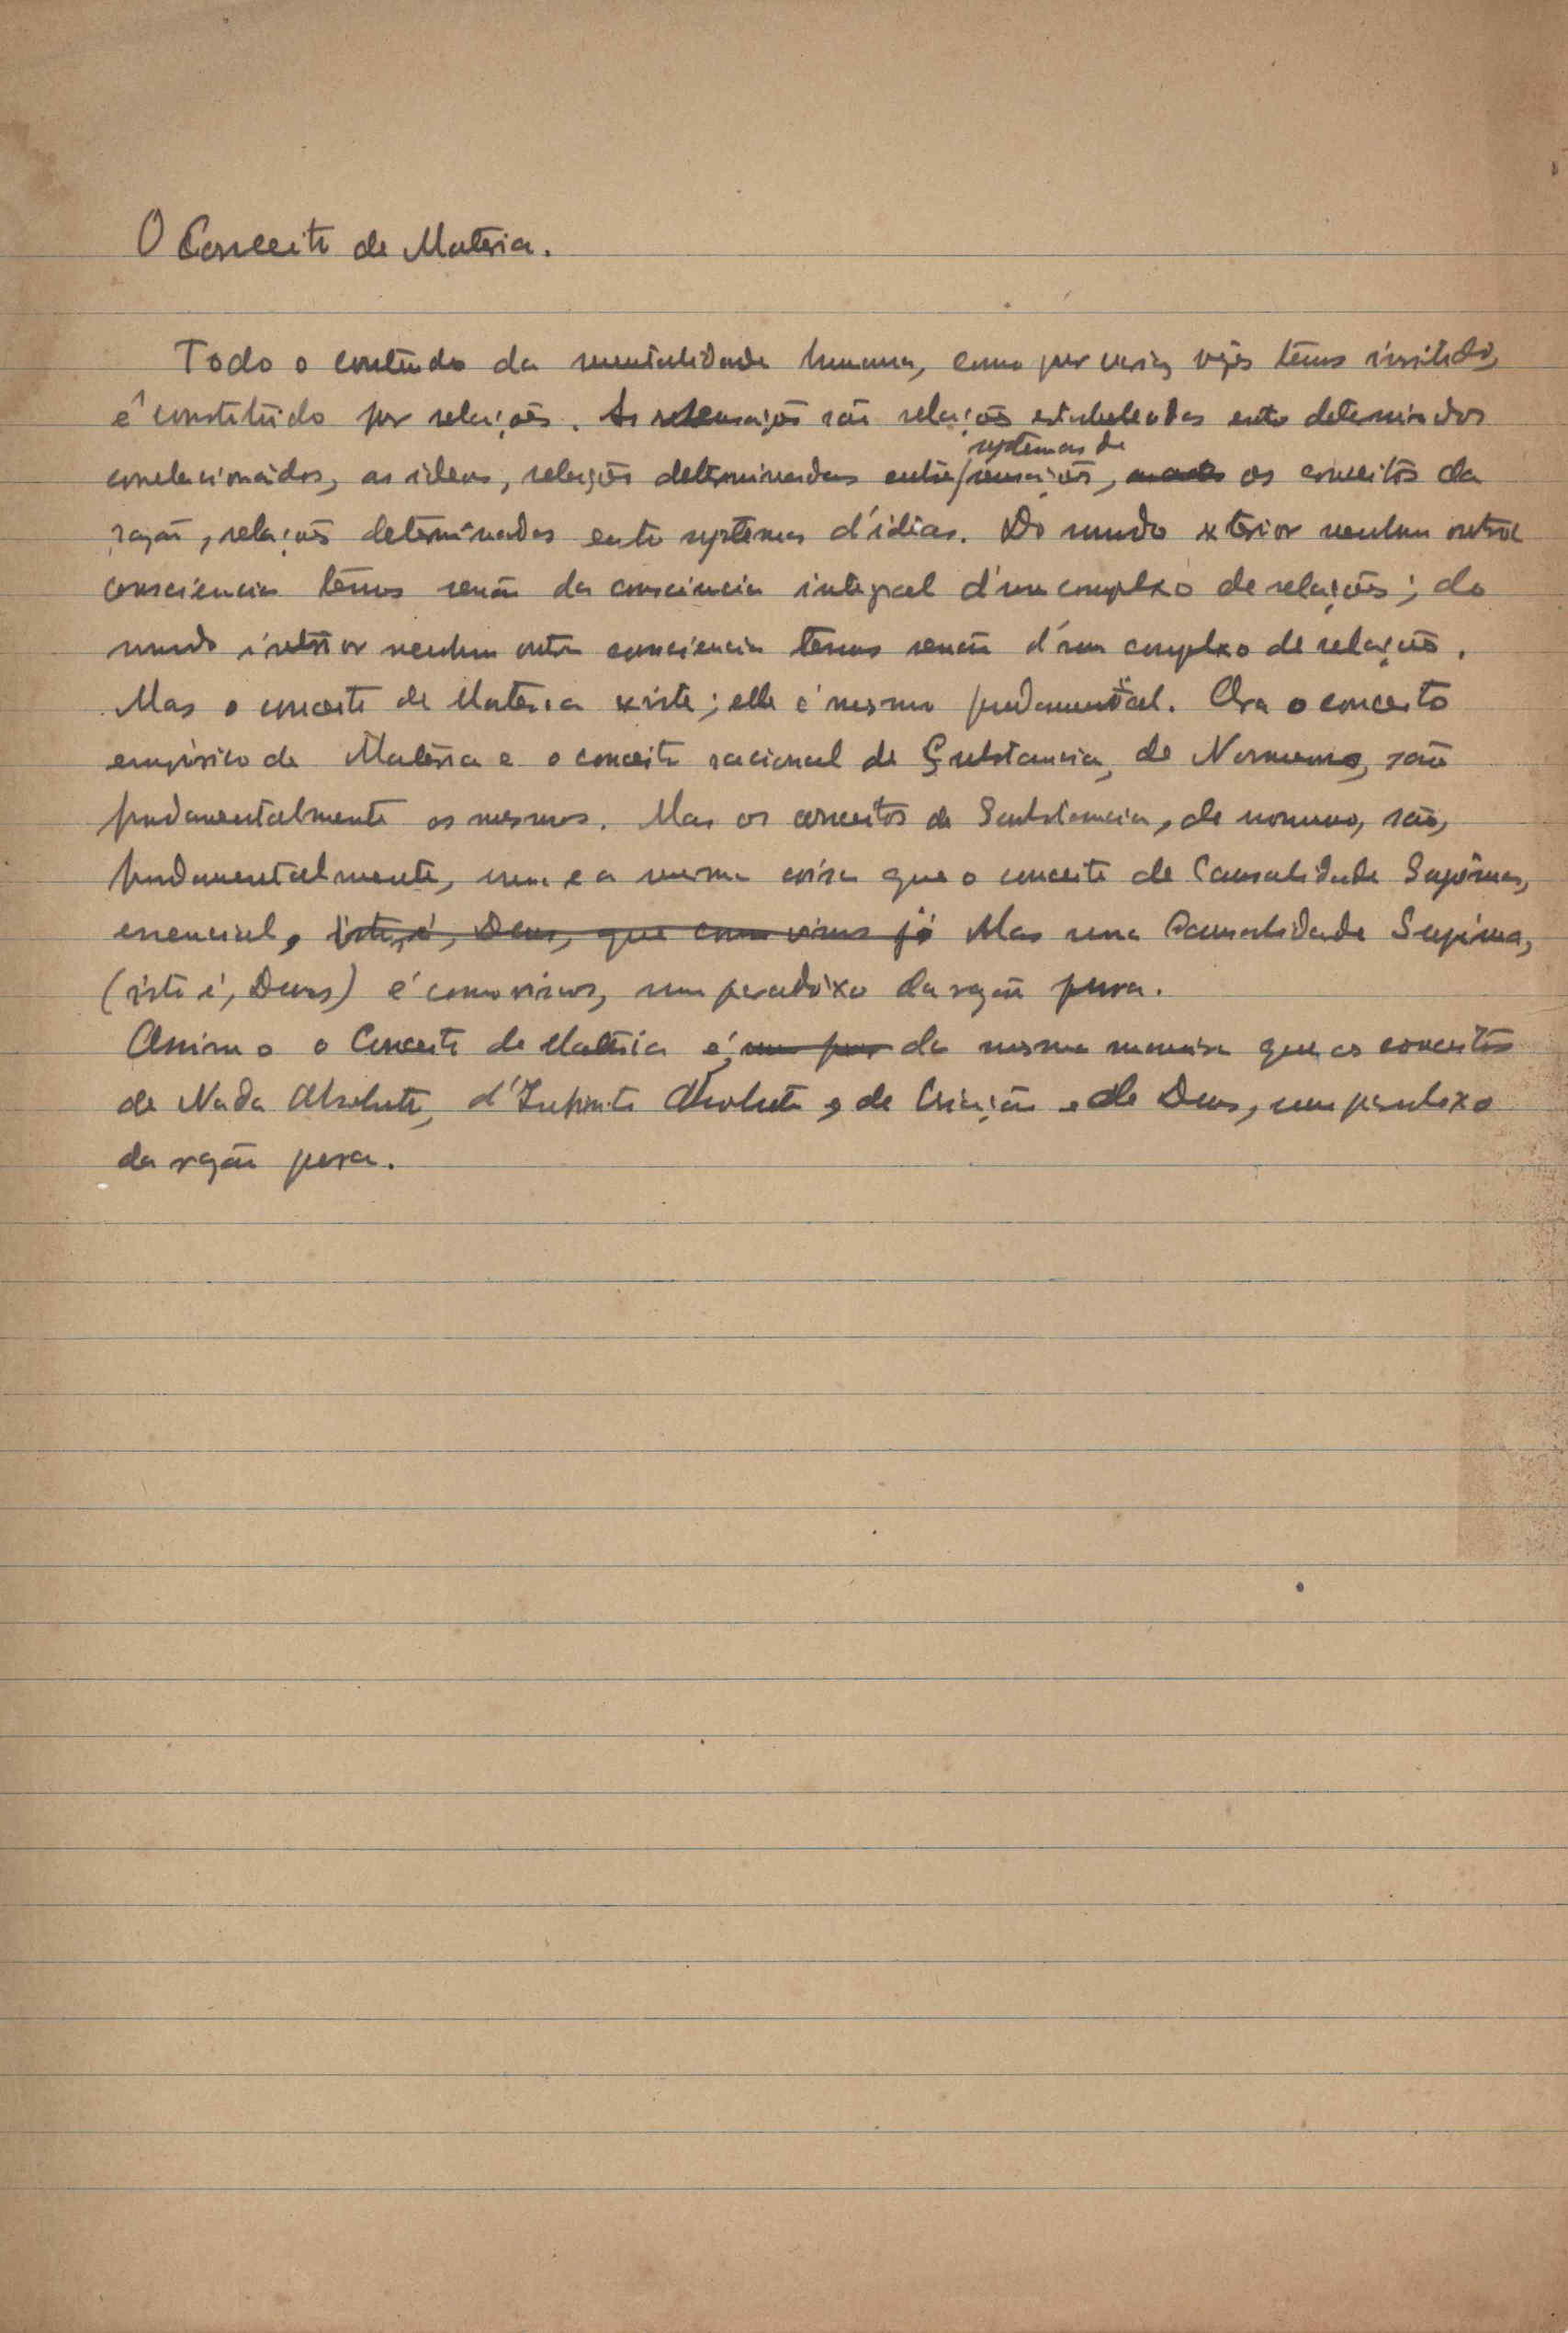 O Conceito de Materia.
Todo o conteudo da mentalidade humana, como por varias vezes temos insistido,
é constituido por relações. As sensações são relações estabelecidas entre determinados
correlacionados, as ideas, relações determinadas entre
systemas de
sensações, os conceitos da
razão, relações determinadas entre systemas d'idéas. Do mundo exterior nenhuma outra
consciencia temos senão da consciencia integral d'um complexo de relações; do
mundo interior nenhuma outra consciencia temos senão d'um complexo de relações.
Mas o conceito de Materia existe; elle é mesmo fundamental. Ora o conceito
empirico de Materia e o conceito racional de Substancia, de Noumeno, são
fundamentalmente os mesmos. Mas os conceitos de Substancia, de noumeno, são,
fundamentalmente, uma e a mesma coisa que o conceito de Causalidade Suprema,
essencial, isto é, Deus, que como vimos já Mas uma Causalidade Suprema,
(isto é, Deus) é como vimos, um paradoxo da razão pura.
Assim o o Conceito de Materia é, da mesma maneira que os conceitos
de Nada Absoluto, d'Infinito Absoluto, de Criação e de Deus, um paradoxo
da razão pura.